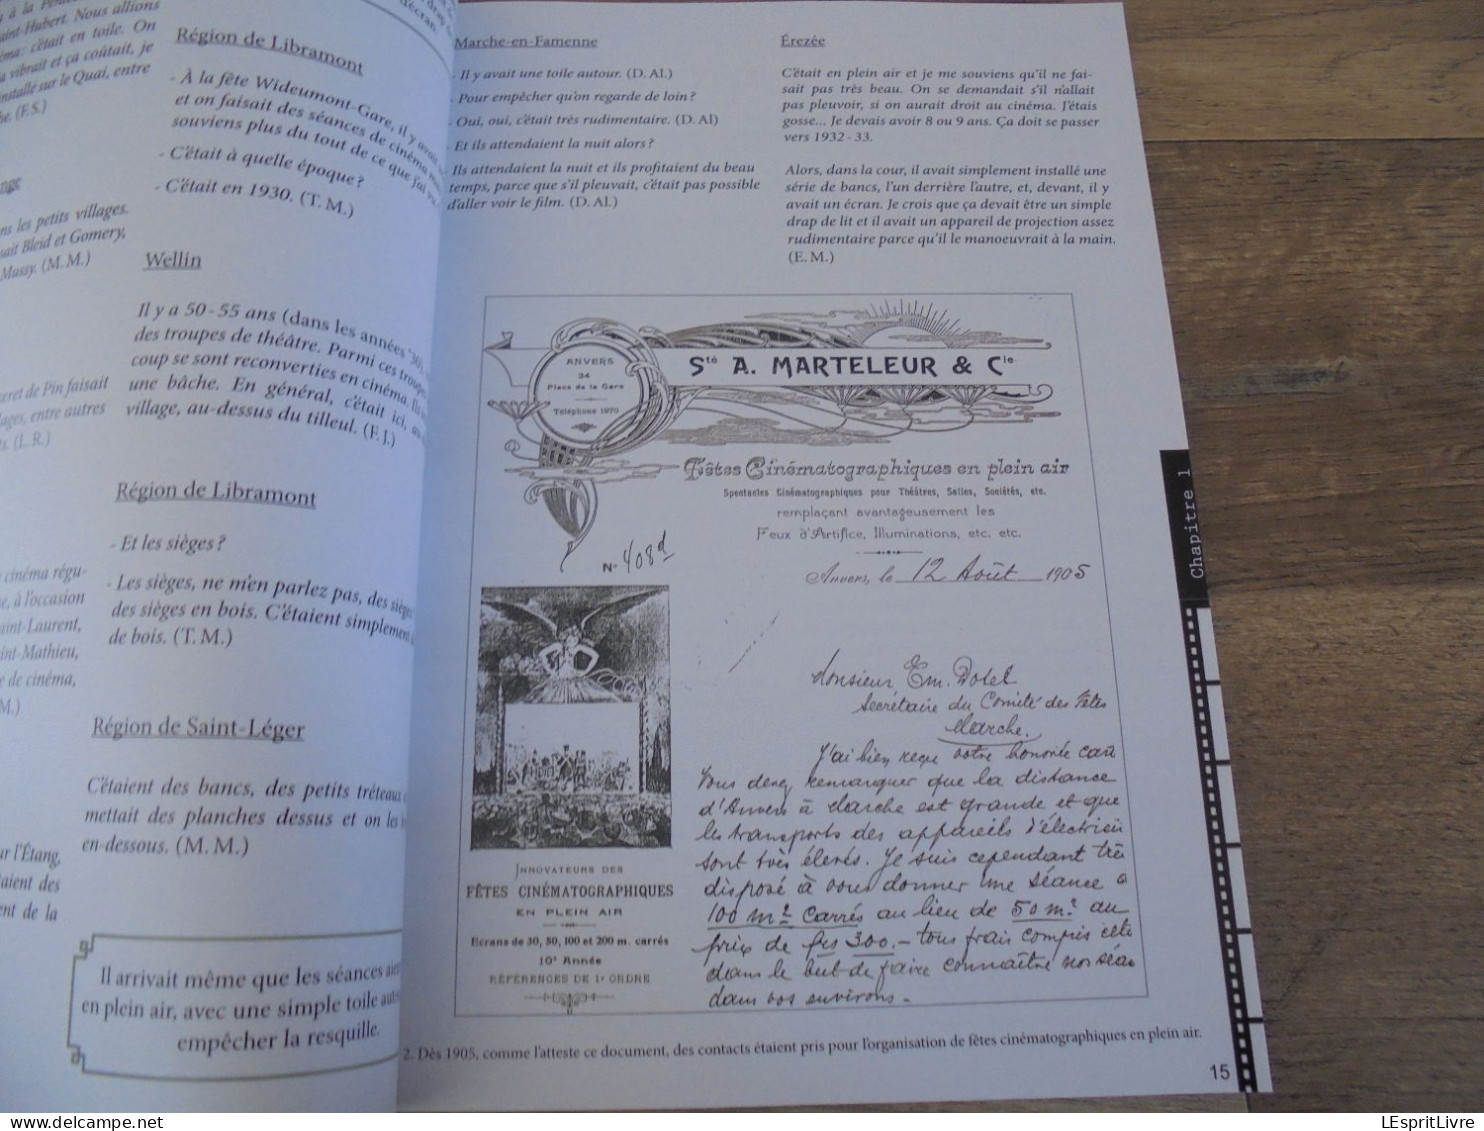 Saint-Hubert. Nous allions
c'était en toile. On
vibrait et ça coûtait, je
installé sur le Quai, entre
(F.S.)
les petits villages.
Bleid et Gomery,
Mussy. (M.M.)
de Pin faisait
entre autres
(L.R.)
cinéma régu-
à l'occasion
Saint-Laurent,
Saint-Mathieu,
de cinéma,
l'Étang,
des
de la
écran
Région de Libramont
- À la fête Wideumont-Gare, il y avait
et on faisait des séances de cinéma
souviens plus du tout de ce que j'ai vu
- C'était à quelle époque?
- C'était en 1930. (T.M.)
Wellin
Il y a 50-55 ans (dans les années '30),
des troupes de théâtre. Parmi ces troupes
coup se sont reconverties en cinéma. Ils
une bâche. En général, c'était ici, au
village, au-dessus du tilleul. (F.J.)
Région de Libramont
- Et les sièges?
- Les sièges, ne m'en parlez pas, des sièges
des sièges en bois. C'étaient simplement
de bois. (T.M.)
Région de Saint-Léger
C'étaient des bancs, des petits tréteaux
mettait des planches dessus et on les
en-dessous. (M.M.)
Il arrivait même que les séances aient
en plein air, avec une simple toile
empêcher la resquille.
Marche-en-Famenne
- Il y avait une toile autour. (D. Al.)
- Pour empêcher qu'on regarde de loin?
- Oui, oui, c'était très rudimentaire. (D. Al)
- Et ils attendaient la nuit alors?
Ils attendaient la nuit et ils profitaient du beau
temps, parce que s'il pleuvait, c'était pas possible
d'aller voir le film. (D. Al.)
Érezée
C'était en plein air et je me souviens qu'il ne fai-
sait pas très beau. On se demandait s'il n'allait
pas pleuvoir, si on aurait droit au cinéma. J'étais
gosse... Je devais avoir 8 ou 9 ans. Ça doit se passer
vers 1932-33.
Alors, dans la cour, il avait simplement installé une
série de bancs, l'un derrière l'autre, et, devant, il y
avait un écran. Je crois que ça devait être un simple
drap de lit et il avait un appareil de projection assez
rudimentaire parce qu'il le manoeuvrait à la main.
(E.M.)
ANVERS
24
Place de la Gare
Téléphone 1970
Sté A. MARTELEUR & Cie
Fêtes Cinématographiques en plein air
Spectacles Cinématographiques pour Théâtres, Salles, Sociétés, etc.
remplaçant avantageusement les
Feux d'Artifice, Illuminations, etc. etc.
N° 408d
Anvers, le 12 Août 1905
Monsieur Em. Dolet
Secrétaire du Comité des Fêtes
Marche.
J'ai bien reçu votre honorée carte
Vous devez remarquer que la distance
d'Anvers à Marche est grande et que
les transports des appareils d'électricité
sont très élevés. Je suis cependant très
disposé à vous donner une séance à
100 m² carrés au lieu de 50 m² au
prix de frs 300.- tous frais compris cela
dans le but de faire connaître nos séances
dans vos environs.-
INNOVATEURS DES
FÊTES CINÉMATOGRAPHIQUES
EN PLEIN AIR
Ecrans de 30, 50, 100 et 200 m. carrés
10e Année
RÉFÉRENCES DE 1r ORDRE
2. Dès 1905, comme l'atteste ce document, des contacts étaient pris pour l'organisation de fêtes cinématographiques en plein air.
15
Chapitre 1
LEspritLivre